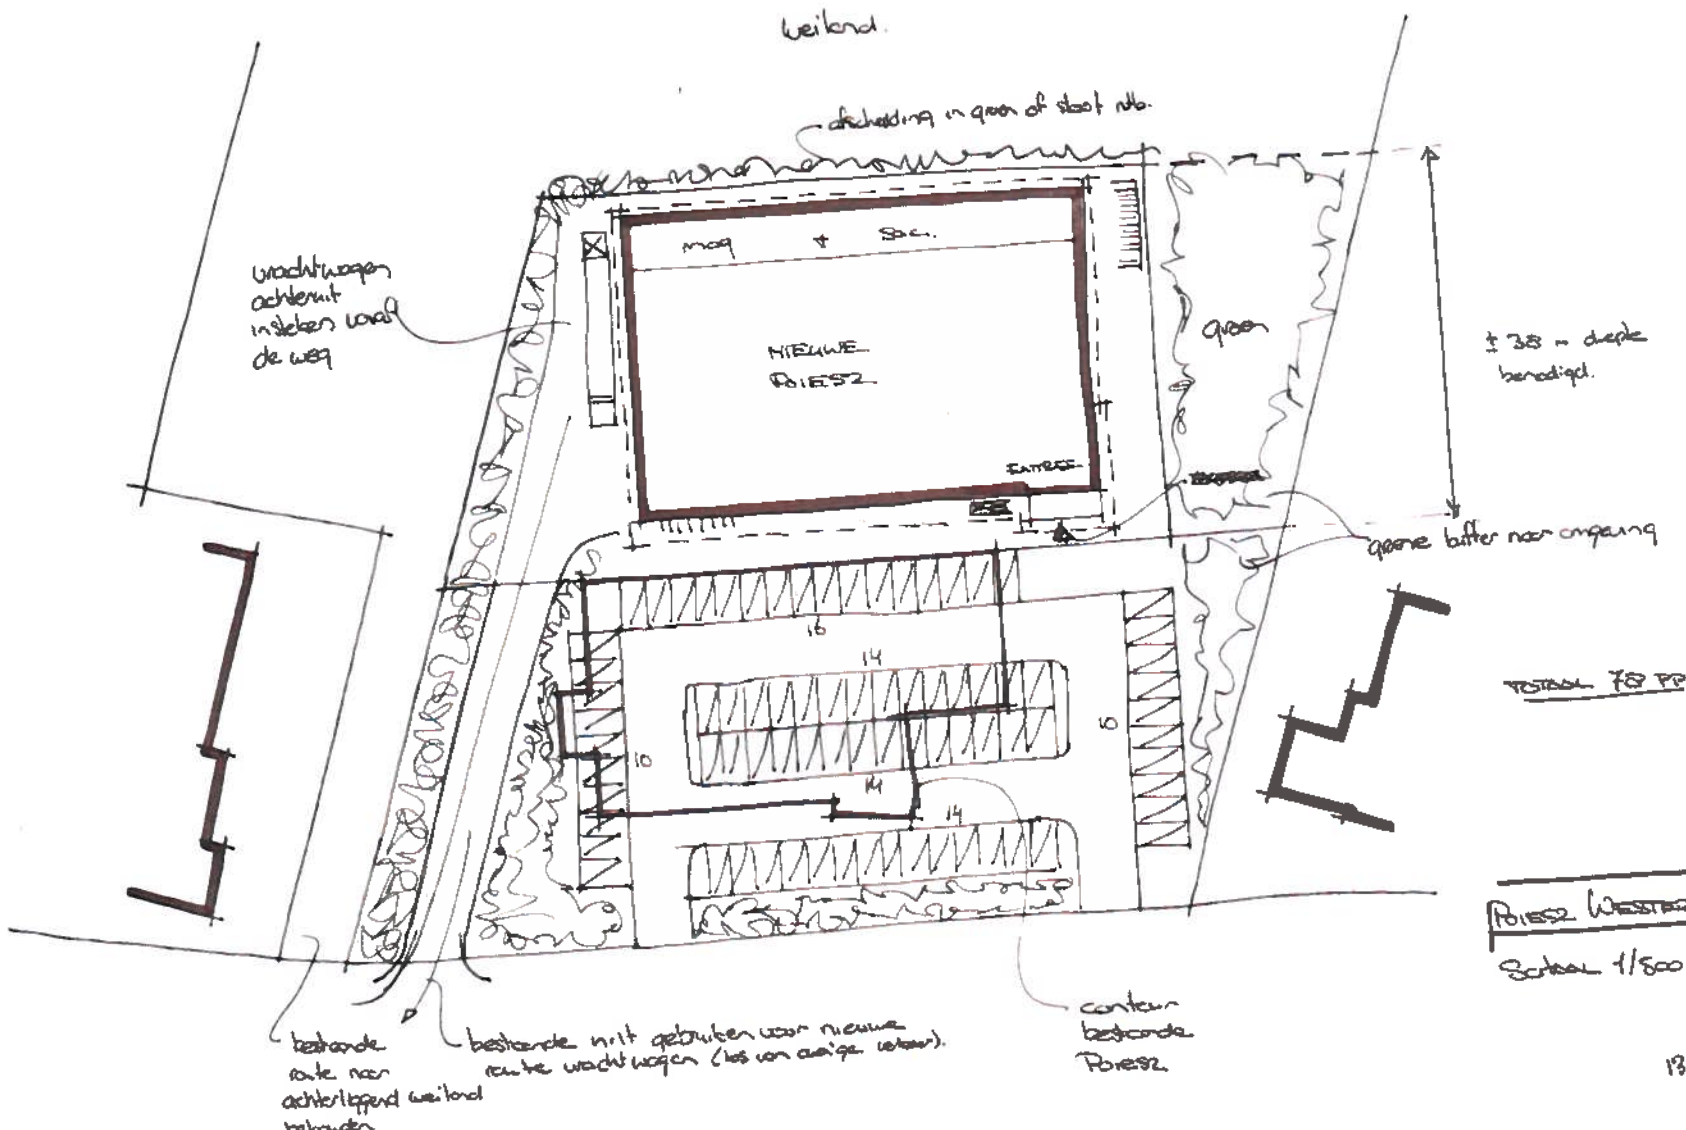 weiland.
afscheiding in groen of sloot ntb.
vrachtwagen
achteruit
insteken vanaf
de weg
mag + soc.
NIEUWE
POIESZ
ENTREE
groen
± 38 m diepte
benodigd.
groene buffer naar omgeving
16
14
10
14
10
14
TOTAAL 78 PP
POIESZ WESTER
Schaal 1/500
contour
bestaande
Poiesz
bestaande
route naar
achterliggend weiland
behouden
bestaande inrit gebruiken voor nieuwe
route vrachtwagen (los van overige verkeer).
13